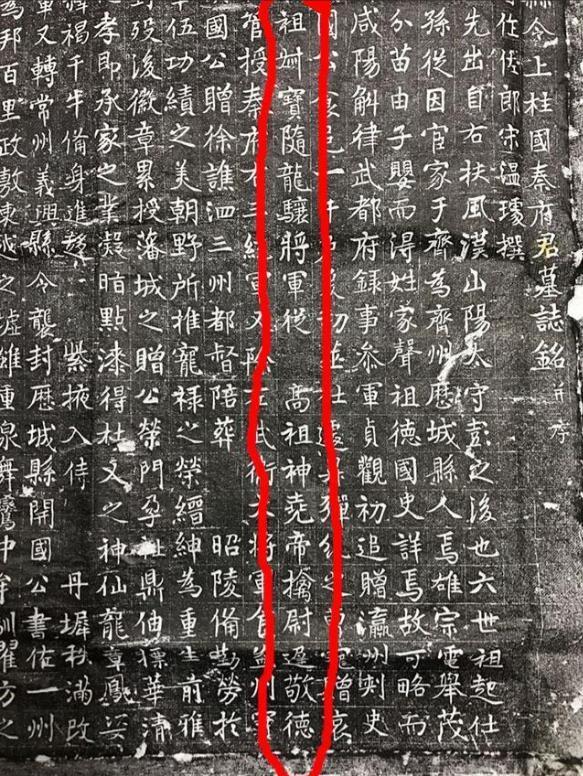 縣令上柱國秦府君墓誌銘并序
作佐郎宋溫璩撰
先出自右扶風漢山陽太守彭之後也六世祖起仕
孫從因官家于齊為齊州歷城縣人焉雄宗電舉茂
分苗由子嬰而得姓家聲祖德國史詳焉故可略而
咸陽斛律武都府録事叅軍貞觀初追贈瀛州刺史
國公食邑一千戶
祖叔寶隨龍驤將軍從 高祖神堯帝擒尉遲敬德
管授秦府右三統軍又除左武衛大將軍食益州實
國公贈徐譙泗三州都督陪葬 昭陵備勤勞於
卒伍功績之美朝野所推寵禄之榮縉紳為重生前雅
歿後徽章累授藩城之贈公榮門孕祉鼎伷摽華清
孝即承家之業凝暗點漆得杜乂之神仙龍章鳳姿
褐千牛備身進趨 紫掖入侍 丹墀秩滿改
軍又轉常州義興縣令襲封歷城縣開國公書佐一州
為邦百里政敷東越之墟雉重泉舞鸞中牟馴翟方之